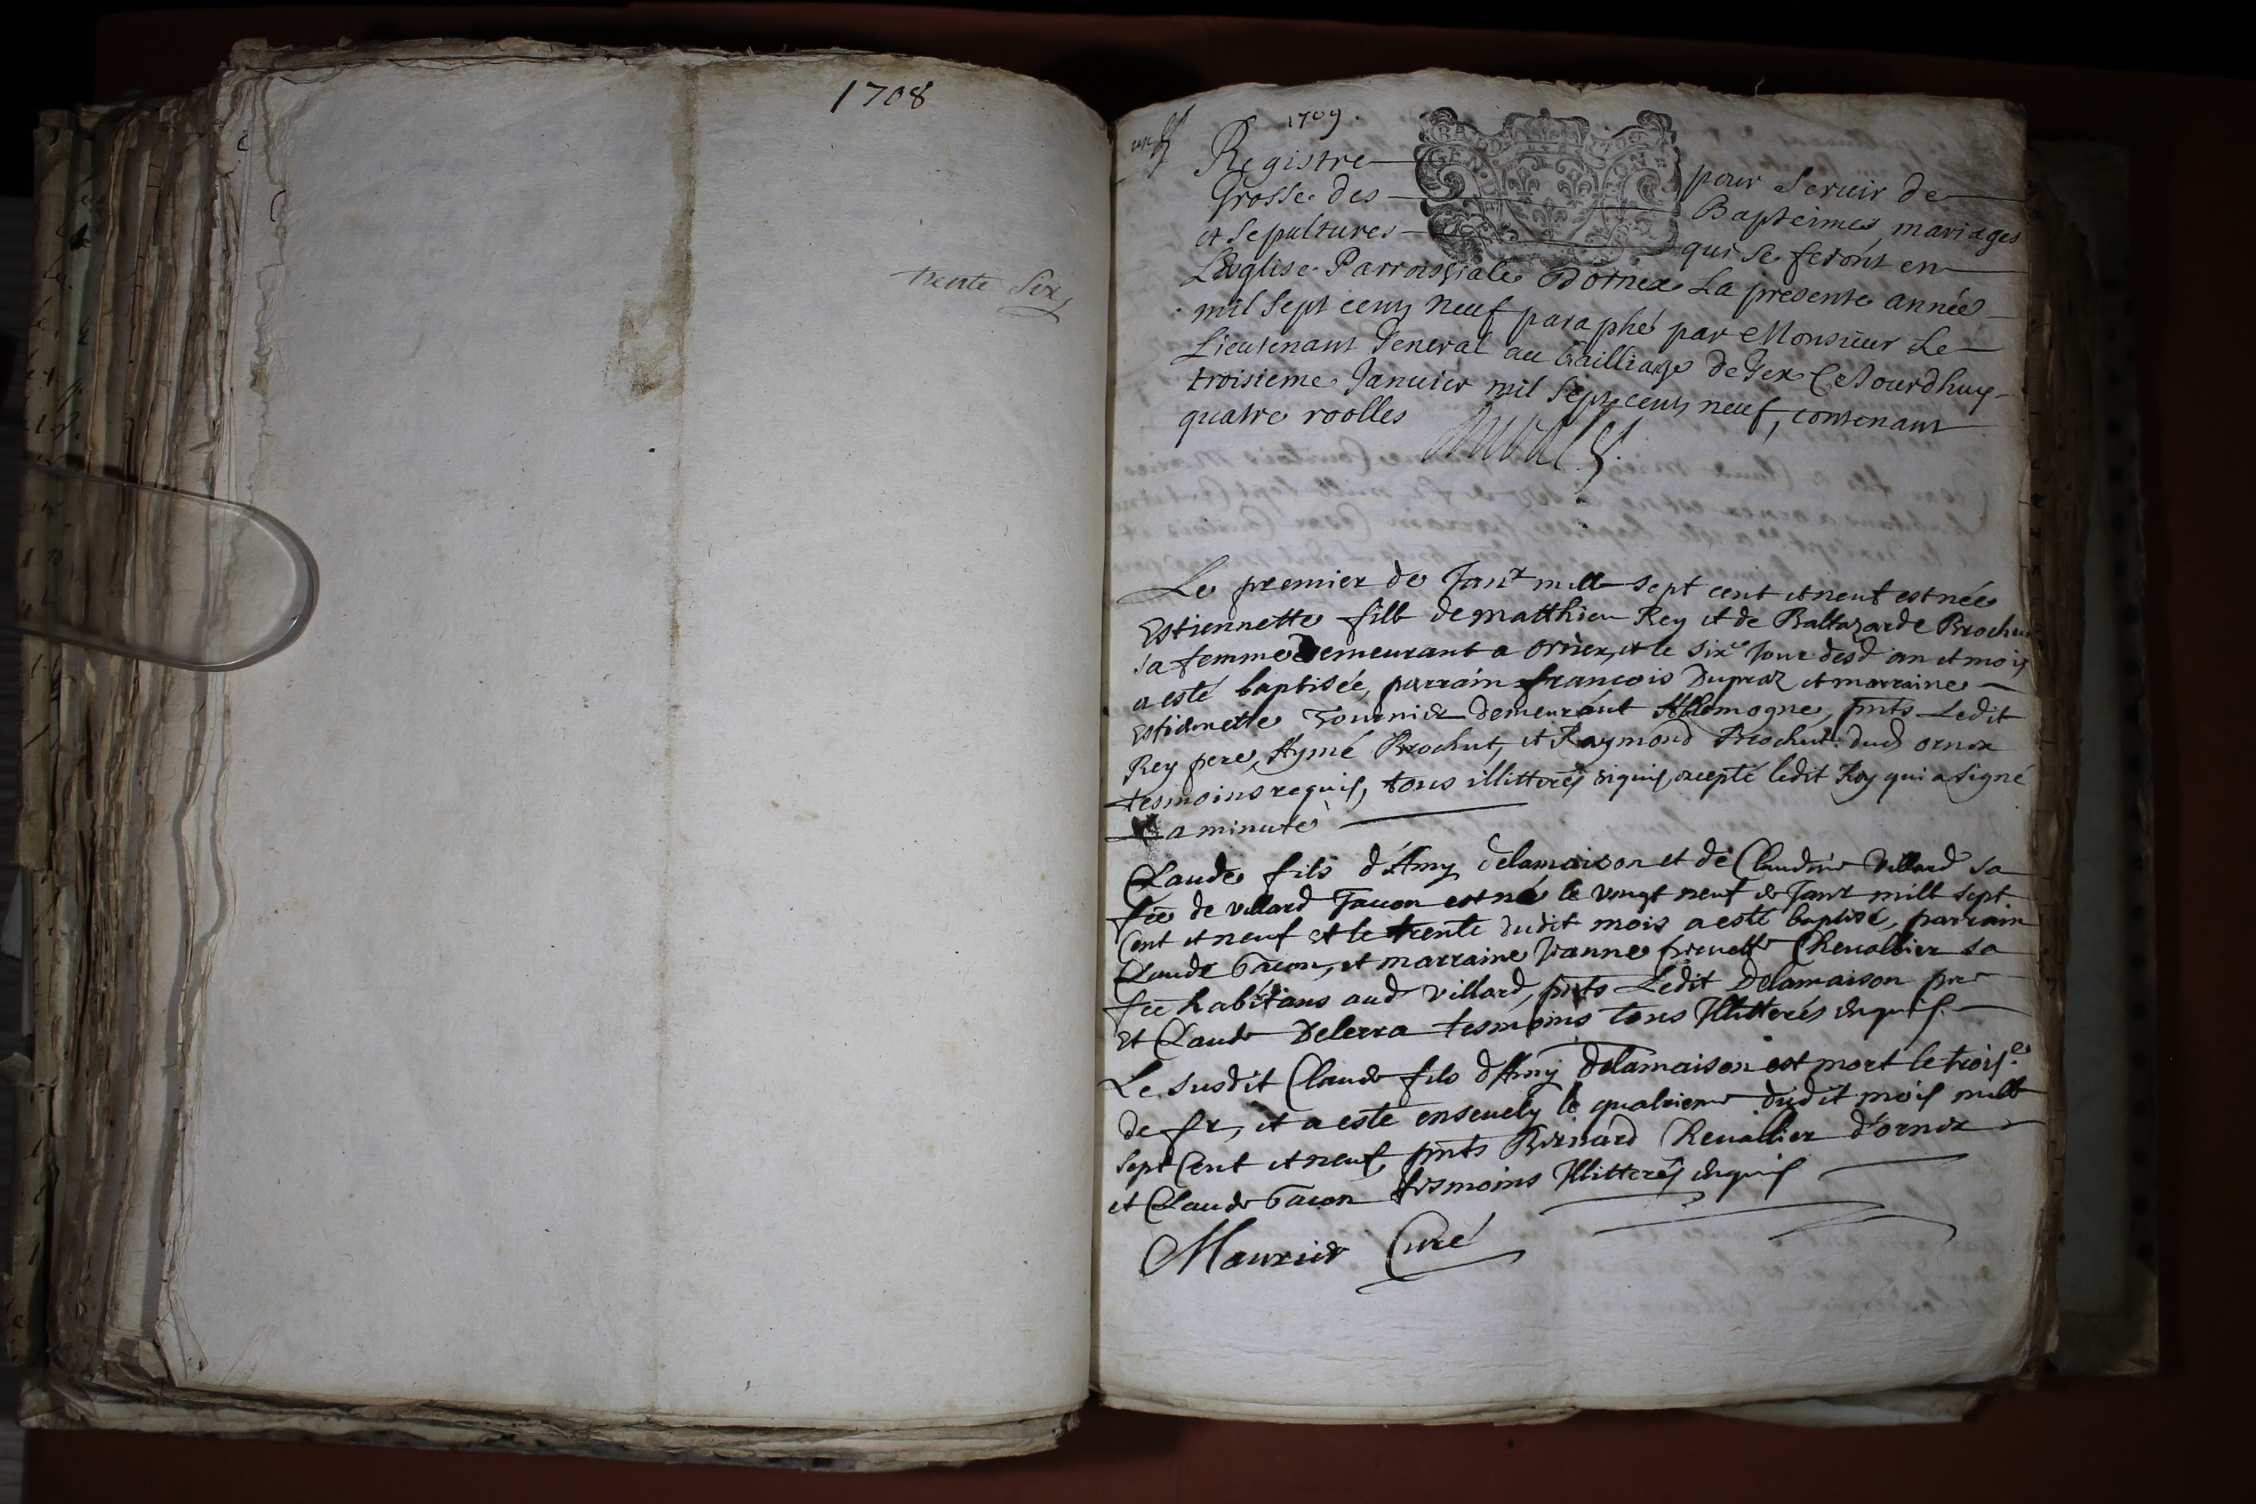 1708
trente six
1709.
Registre pour Servir de
Grosse des Baptesmes, mariages
et Sepultures qui se feront en
L'Esglise Parroissiale Dornex La presente année
mil Sept cents neuf paraphé par Monsieur Le
Lieutenant General au bailliage de Gex Cejourdhuy
troisieme Januier mil Sept cents neuf, contenant
quatre roolles
Le premier de Janr mill sept cent et neuf est née
Estiennette fille de matthieu Rey et de Baltazarde Brochu
sa femme Demeurant a ornex, et le sixe Jour desd an et mois
a esté baptisée, parrain francois Dupraz et marraine
Estiennette Fournier demeurant Allemogne, pnts Ledit
Rey pere, Aymé Brochut, et Raymond Brochut dud ornex
tesmoins requis, tous illitterés enquis, excepté ledit Rey qui a signé
La minute
Claude fils d'Amy Delamaison et de Claudine Villard sa
fee de villard Tacon est né le vingt neuf de Janr mill sept
Cent et neuf et le trente dudit mois a esté baptisé, parrain
Claude Tacon, et marraine Jeanne preuette Cheuallier sa
fee habitans aud Villard, pnts Ledit Delamaison pere
et Claude Delerra tesmoins tous Illitterés enquis.
Le susdit Claude fils d'Amy Delamaison est mort le troise
de fr, et a esté enseuely le quatrieme dudit mois mille
Sept Cent et neuf, pnts Bernard Cheuallier d'ornex
et Claude Tacon tesmoins Illitterés enquis
Maurier Curé